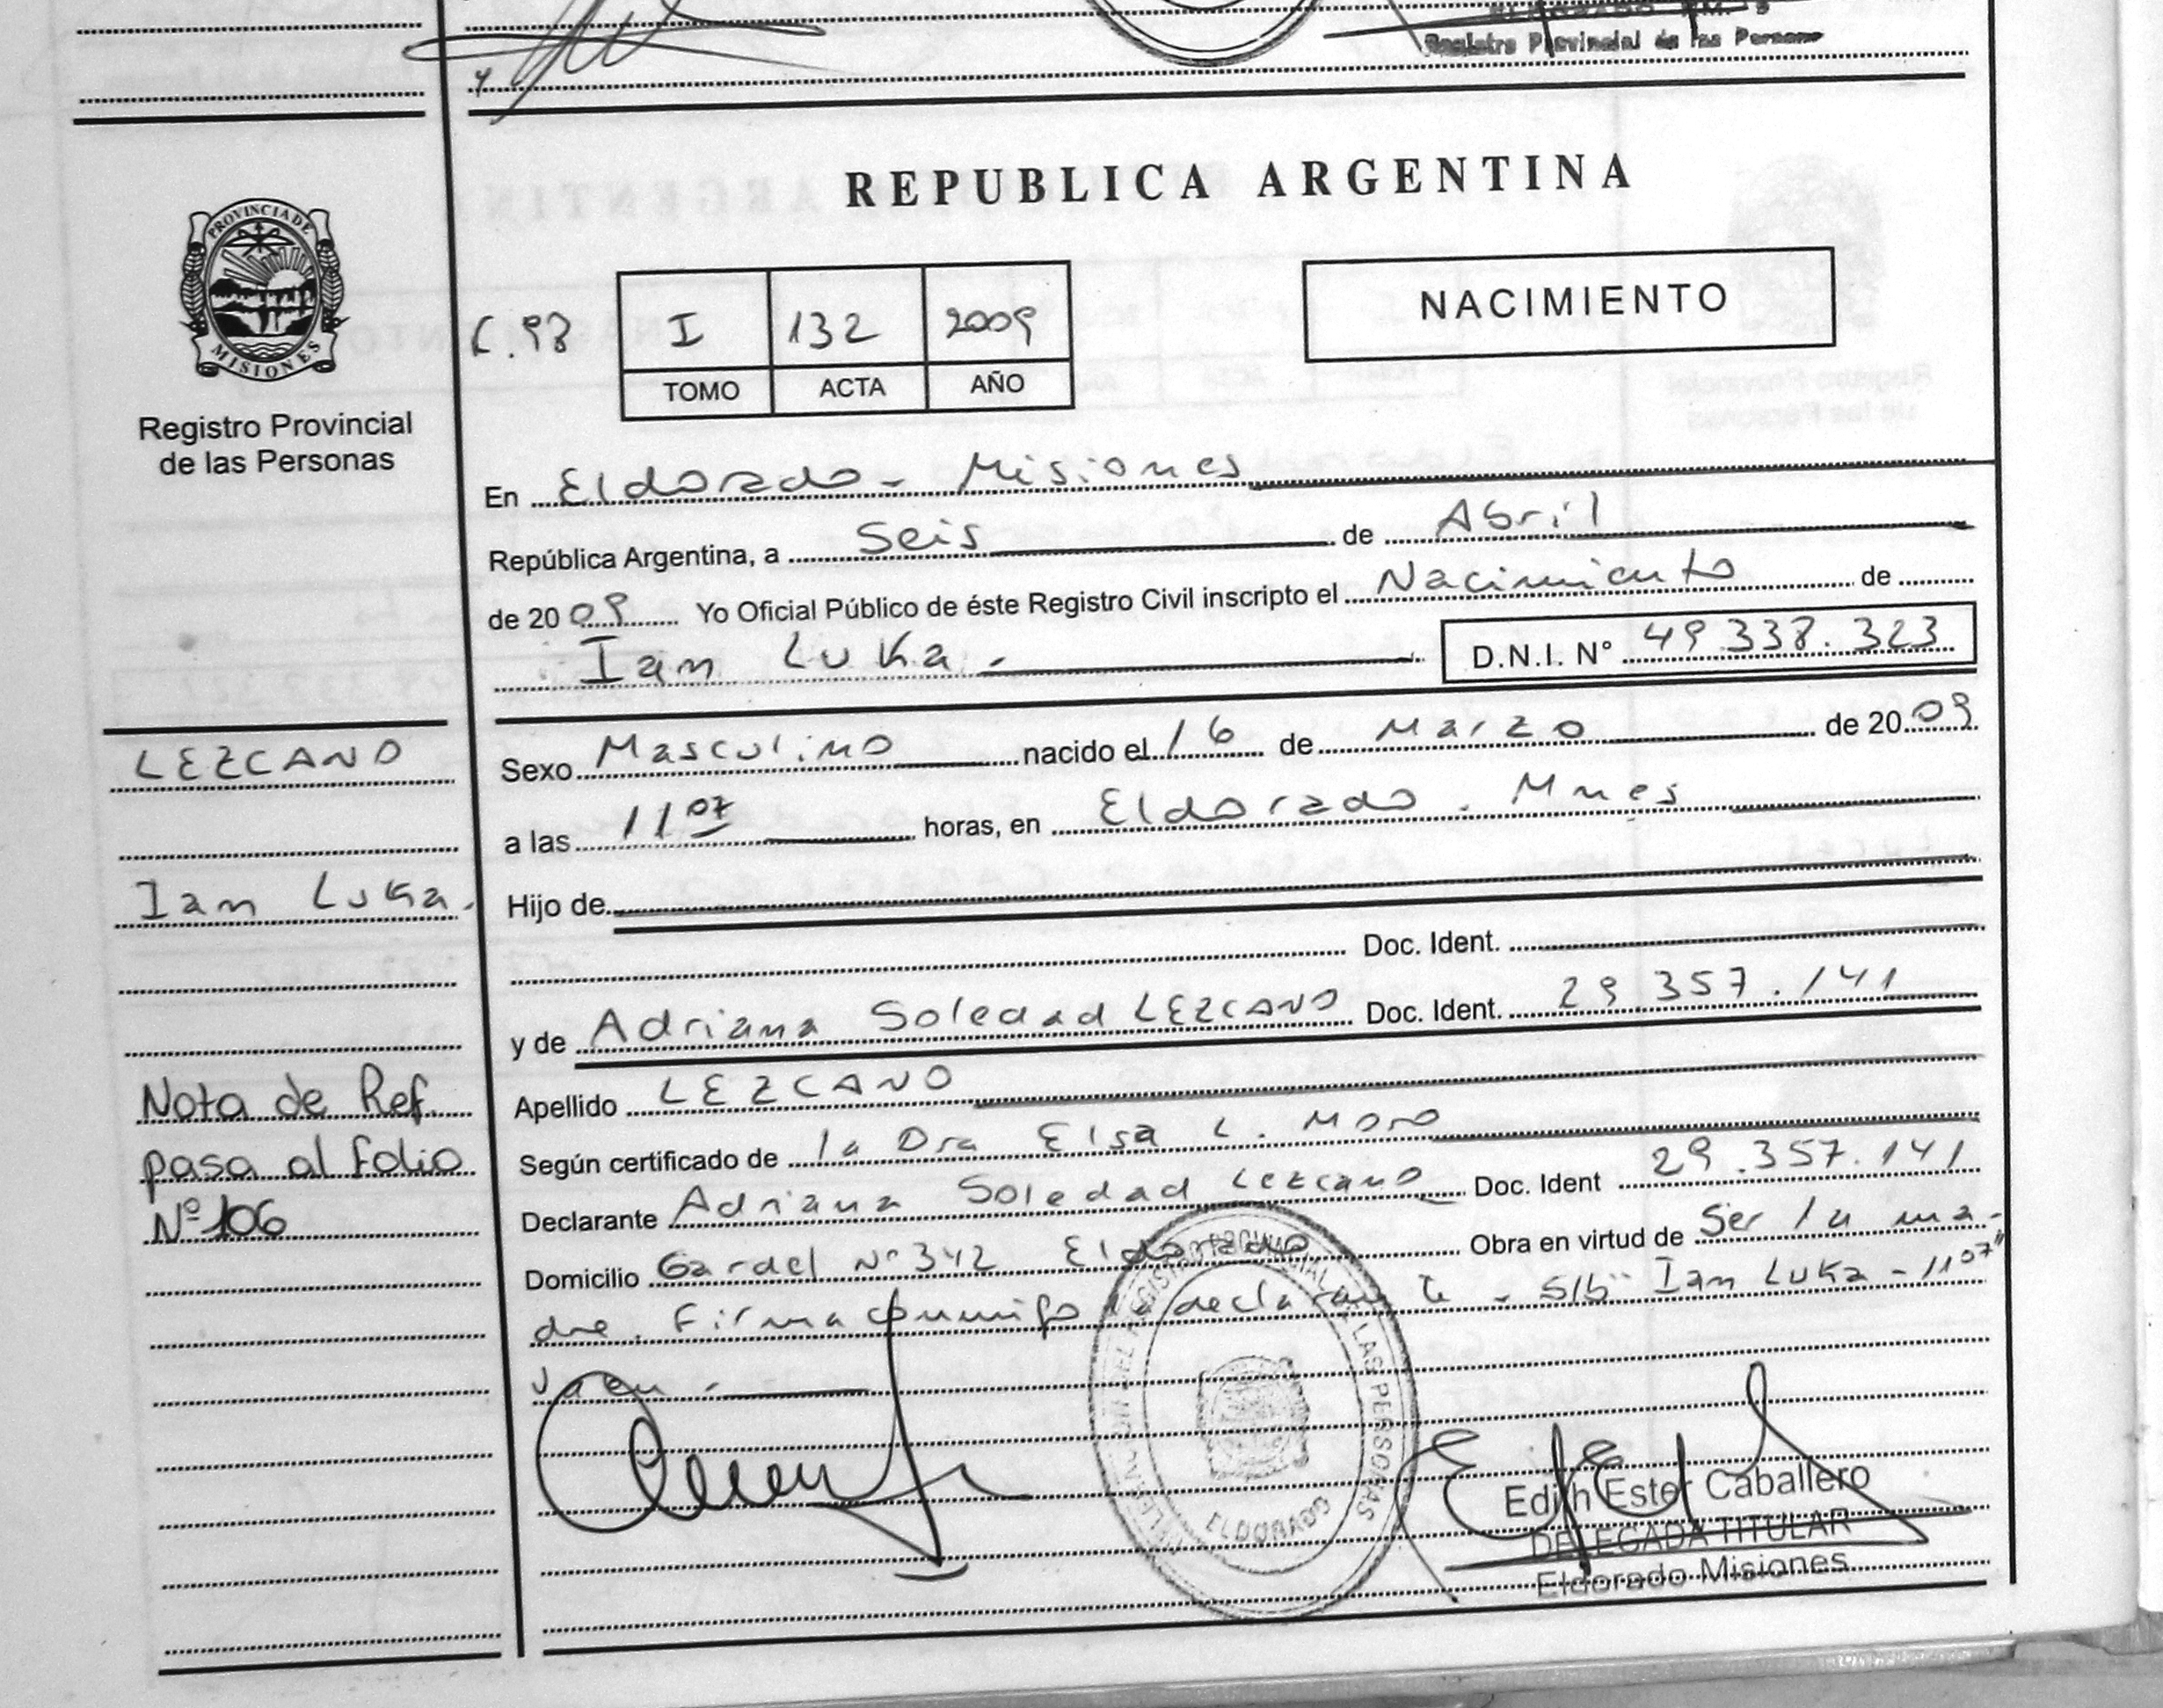 Registro Provincial de las Persona
REPUBLICA ARGENTINA
PROVINCIA DE
MISIONES
Registro Provincial
de las Personas
I 132 2009
TOMO ACTA AÑO
NACIMIENTO
En Eldorado - Misiones
República Argentina, a Seis de Abril
de 2009 Yo Oficial Público de éste Registro Civil inscripto el Nacimiento de
Ian Luka - D.N.I. N° 49.338.323
LEZCANO
Ian Luka.
Nota de Ref.
pasa al folio
Nº 106
Sexo Masculino nacido el 16 de Marzo de 2009
a las 11 07 horas, en Eldorado - Mnes
Hijo de
Doc. Ident.
y de Adriana Soledad LEZCANO Doc. Ident. 29.357.141
Apellido LEZCANO
Según certificado de la Dra Elsa L. Moro
Declarante Adriana Soledad Lezcano Doc. Ident 29.357.141
Domicilio Gardel Nº 342 Eldorado Obra en virtud de Ser la ma-
dre. Firma conmigo la declarante - S/b " Ian Luka - 11 07"
Valen -
ELDORADO
Edith Ester Caballero
DELEGADA TITULAR
Eldorado Misiones